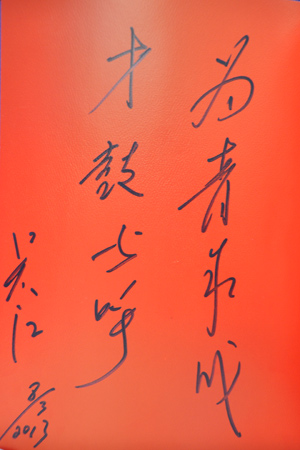 为青年成
才鼓与呼
吴江
2013